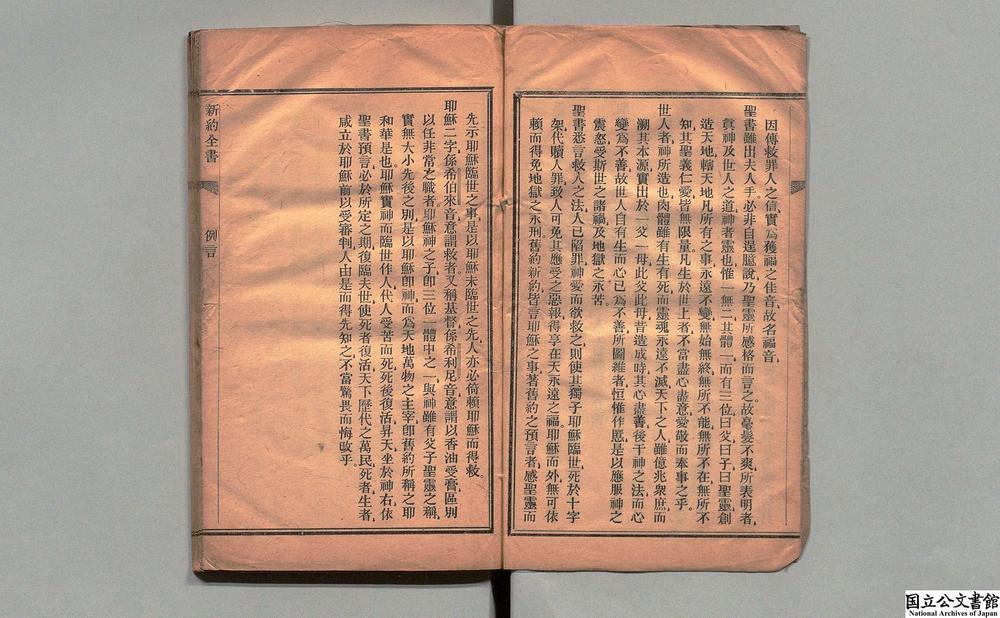 因傳救罪人之信實爲獲福之佳音故名福音
聖書雖出夫人手必非自逞臆說乃聖靈所感格而言之故毫髮不爽所表明者
眞神及世人之道神者靈也惟一無二其體一而有三位曰父曰子曰聖靈創
造天地轄天地凡所有之事永遠不變無始無終無所不能無所不在無所不
知其聖義仁愛皆無限量凡生於世上者不當盡心盡意愛敬而奉事之乎
世人者神所造也肉體雖有生有死而靈魂永遠不滅天下之人雖億兆衆庶而
溯其本源實出於一父一母此父此母昔造成時其心盡善後干神之法而心
變爲不善故世人自有生而心已爲不善所圖維者恒惟作慝是以應服神之
震怒受斯世之諸禍及地獄之永苦
聖書悉言救人之法人已陷罪神愛而欲救之則使其獨子耶穌臨世死於十字
架代贖人罪致人可免其應受之惡報得享在天永遠之福耶穌而外無可依
賴而得免地獄之永刑舊約新約皆言耶穌之事著舊約之預言者感聖靈而
先示耶穌臨世之事是以耶穌未臨世之先人亦必倚賴耶穌而得救
耶穌二字係希伯來音意謂救者又稱基督係希利尼音意謂以香油受膏區別
以任非常之職者耶穌神之子卽三位一體中之一與神雖有父子聖靈之稱
實無大小先後之別是以耶穌卽神而爲天地萬物之主宰卽舊約所稱之耶
和華是也耶穌實神而臨世作人代人受苦而死死後復活昇天坐於神右依
聖書預言必於所定之期復臨夫世使死者復活天下歷代之萬民死者生者
咸立於耶穌前以受審判人由是而得先知之不當驚畏而悔改乎
新約全書
例言
国立公文書館
National Archives of Japan